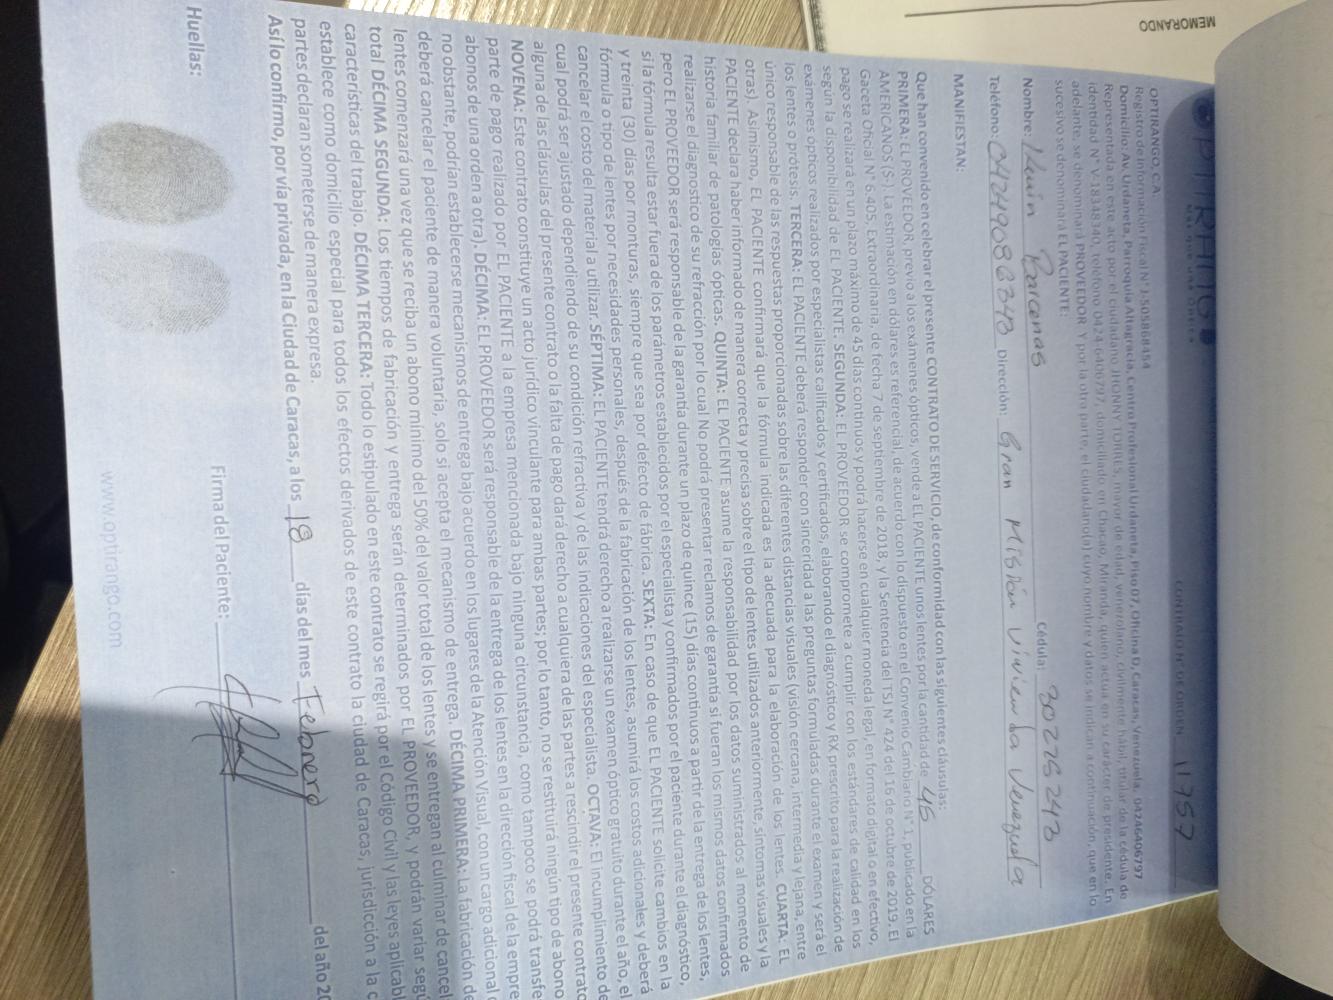 MEMORANDO
OPTIRANGO
CONTRATO Nº DE ORDEN 11757
OPTIRANGO, C.A.
Registro de Información Fiscal N° J-505868454
Domicilio: Av. Urdaneta, Parroquia Altagracia, Centro Profesional Urdaneta, Piso 07, Oficina D, Caracas, Venezuela. 04246406797
Representada en este acto por el ciudadano JHONNY TORRES, mayor de edad, venezolano, civilmente hábil, titular de la cédula de
identidad N° V-18348340, teléfono 0424-6406797, domiciliado en Chacao, Miranda, quien actúa en su carácter de presidente. En
adelante, se denominará PROVEEDOR Y por la otra parte, el ciudadano(a) cuyo nombre y datos se indican a continuación, que en lo
sucesivo se denominará EL PACIENTE:
Nombre: Kevin Barcenas Cédula: 30275243
Teléfono: 04249086343 Dirección: Gran Misión Vivienda Venezuela
MANIFIESTAN:
Que han convenido en celebrar el presente CONTRATO DE SERVICIO, de conformidad con las siguientes cláusulas:
PRIMERA: EL PROVEEDOR, previo a los exámenes ópticos, vende a EL PACIENTE unos lentes por la cantidad de 45 DÓLARES
AMERICANOS ($-). La estimación en dólares es referencial, de acuerdo con lo dispuesto en el Convenio Cambiario N° 1, publicado en la
Gaceta Oficial N° 6.405, Extraordinaria, de fecha 7 de septiembre de 2018, y la Sentencia del TSJ N° 424 del 16 de octubre de 2019. El
pago se realizará en un plazo máximo de 45 días continuos y podrá hacerse en cualquier moneda legal, en formato digital o en efectivo,
segun la disponibilidad de EL PACIENTE. SEGUNDA: EL PROVEEDOR se compromete a cumplir con los estándares de calidad en los
exámenes ópticos realizados por especialistas calificados y certificados, elaborando el diagnóstico y RX prescrito para la realización de
los lentes o prótesis. TERCERA: EL PACIENTE deberá responder con sinceridad a las preguntas formuladas durante el examen y será el
único responsable de las respuestas proporcionadas sobre las diferentes distancias visuales (visión cercana, intermedia y lejana, entre
otras). Asimismo, EL PACIENTE confirmará que la fórmula indicada es la adecuada para la elaboración de los lentes. CUARTA: EL
PACIENTE declara haber informado de manera correcta y precisa sobre el tipo de lentes utilizados anteriormente, síntomas visuales y la
historia familiar de patologías ópticas. QUINTA: EL PACIENTE asume la responsabilidad por los datos suministrados al momento de
realizarse el diagnóstico de su refracción por lo cual No podrá presentar reclamos de garantía si fueran los mismos datos confirmados
pero EL PROVEEDOR será responsable de la garantía durante un plazo de quince (15) días continuos a partir de la entrega de los lentes,
si la fórmula resulta estar fuera de los parámetros establecidos por el especialista y confirmados por el paciente durante el diagnóstico,
y treinta (30) días por monturas, siempre que sea por defecto de fábrica. SEXTA: En caso de que EL PACIENTE solicite cambios en la
fórmula o tipo de lentes por necesidades personales, después de la fabricación de los lentes, asumirá los costos adicionales y deberá
cancelar el costo del material a utilizar. SÉPTIMA: EL PACIENTE tendrá derecho a realizarse un examen óptico gratuito durante el año, el
cual podrá ser ajustado dependiendo de su condición refractiva y de las indicaciones del especialista. OCTAVA: El incumplimiento de
alguna de las cláusulas del presente contrato o la falta de pago dará derecho a cualquiera de las partes a rescindir el presente contrato
NOVENA: Este contrato constituye un acto jurídico vinculante para ambas partes; por lo tanto, no se restituirá ningún tipo de abono
parte de pago realizado por EL PACIENTE a la empresa mencionada bajo ninguna circunstancia, como tampoco se podrá transfe
abonos de una orden a otra). DÉCIMA: EL PROVEEDOR será responsable de la entrega de los lentes en la dirección fiscal de la empre
no obstante, podrían establecerse mecanismos de entrega bajo acuerdo en los lugares de la Atención Visual, con un cargo adicional
deberá cancelar el paciente de manera voluntaria, solo si acepta el mecanismo de entrega. DÉCIMA PRIMERA: La fabricación de
lentes comenzará una vez que se reciba un abono mínimo del 50% del valor total de los lentes y se entregan al culminar de cancel
total DÉCIMA SEGUNDA: Los tiempos de fabricación y entrega serán determinados por EL PROVEEDOR, y podrán variar segú
características del trabajo. DÉCIMA TERCERA: Todo lo estipulado en este contrato se regirá por el Código Civil y las leyes aplicabl
establece como domicilio especial para todos los efectos derivados de este contrato la ciudad de Caracas, jurisdicción a la c
partes declaran someterse de manera expresa.
Así lo confirmo, por vía privada, en la Ciudad de Caracas, a los 18 días del mes Febrero del año 20
Huellas:
Firma del Paciente:
www.optirango.com